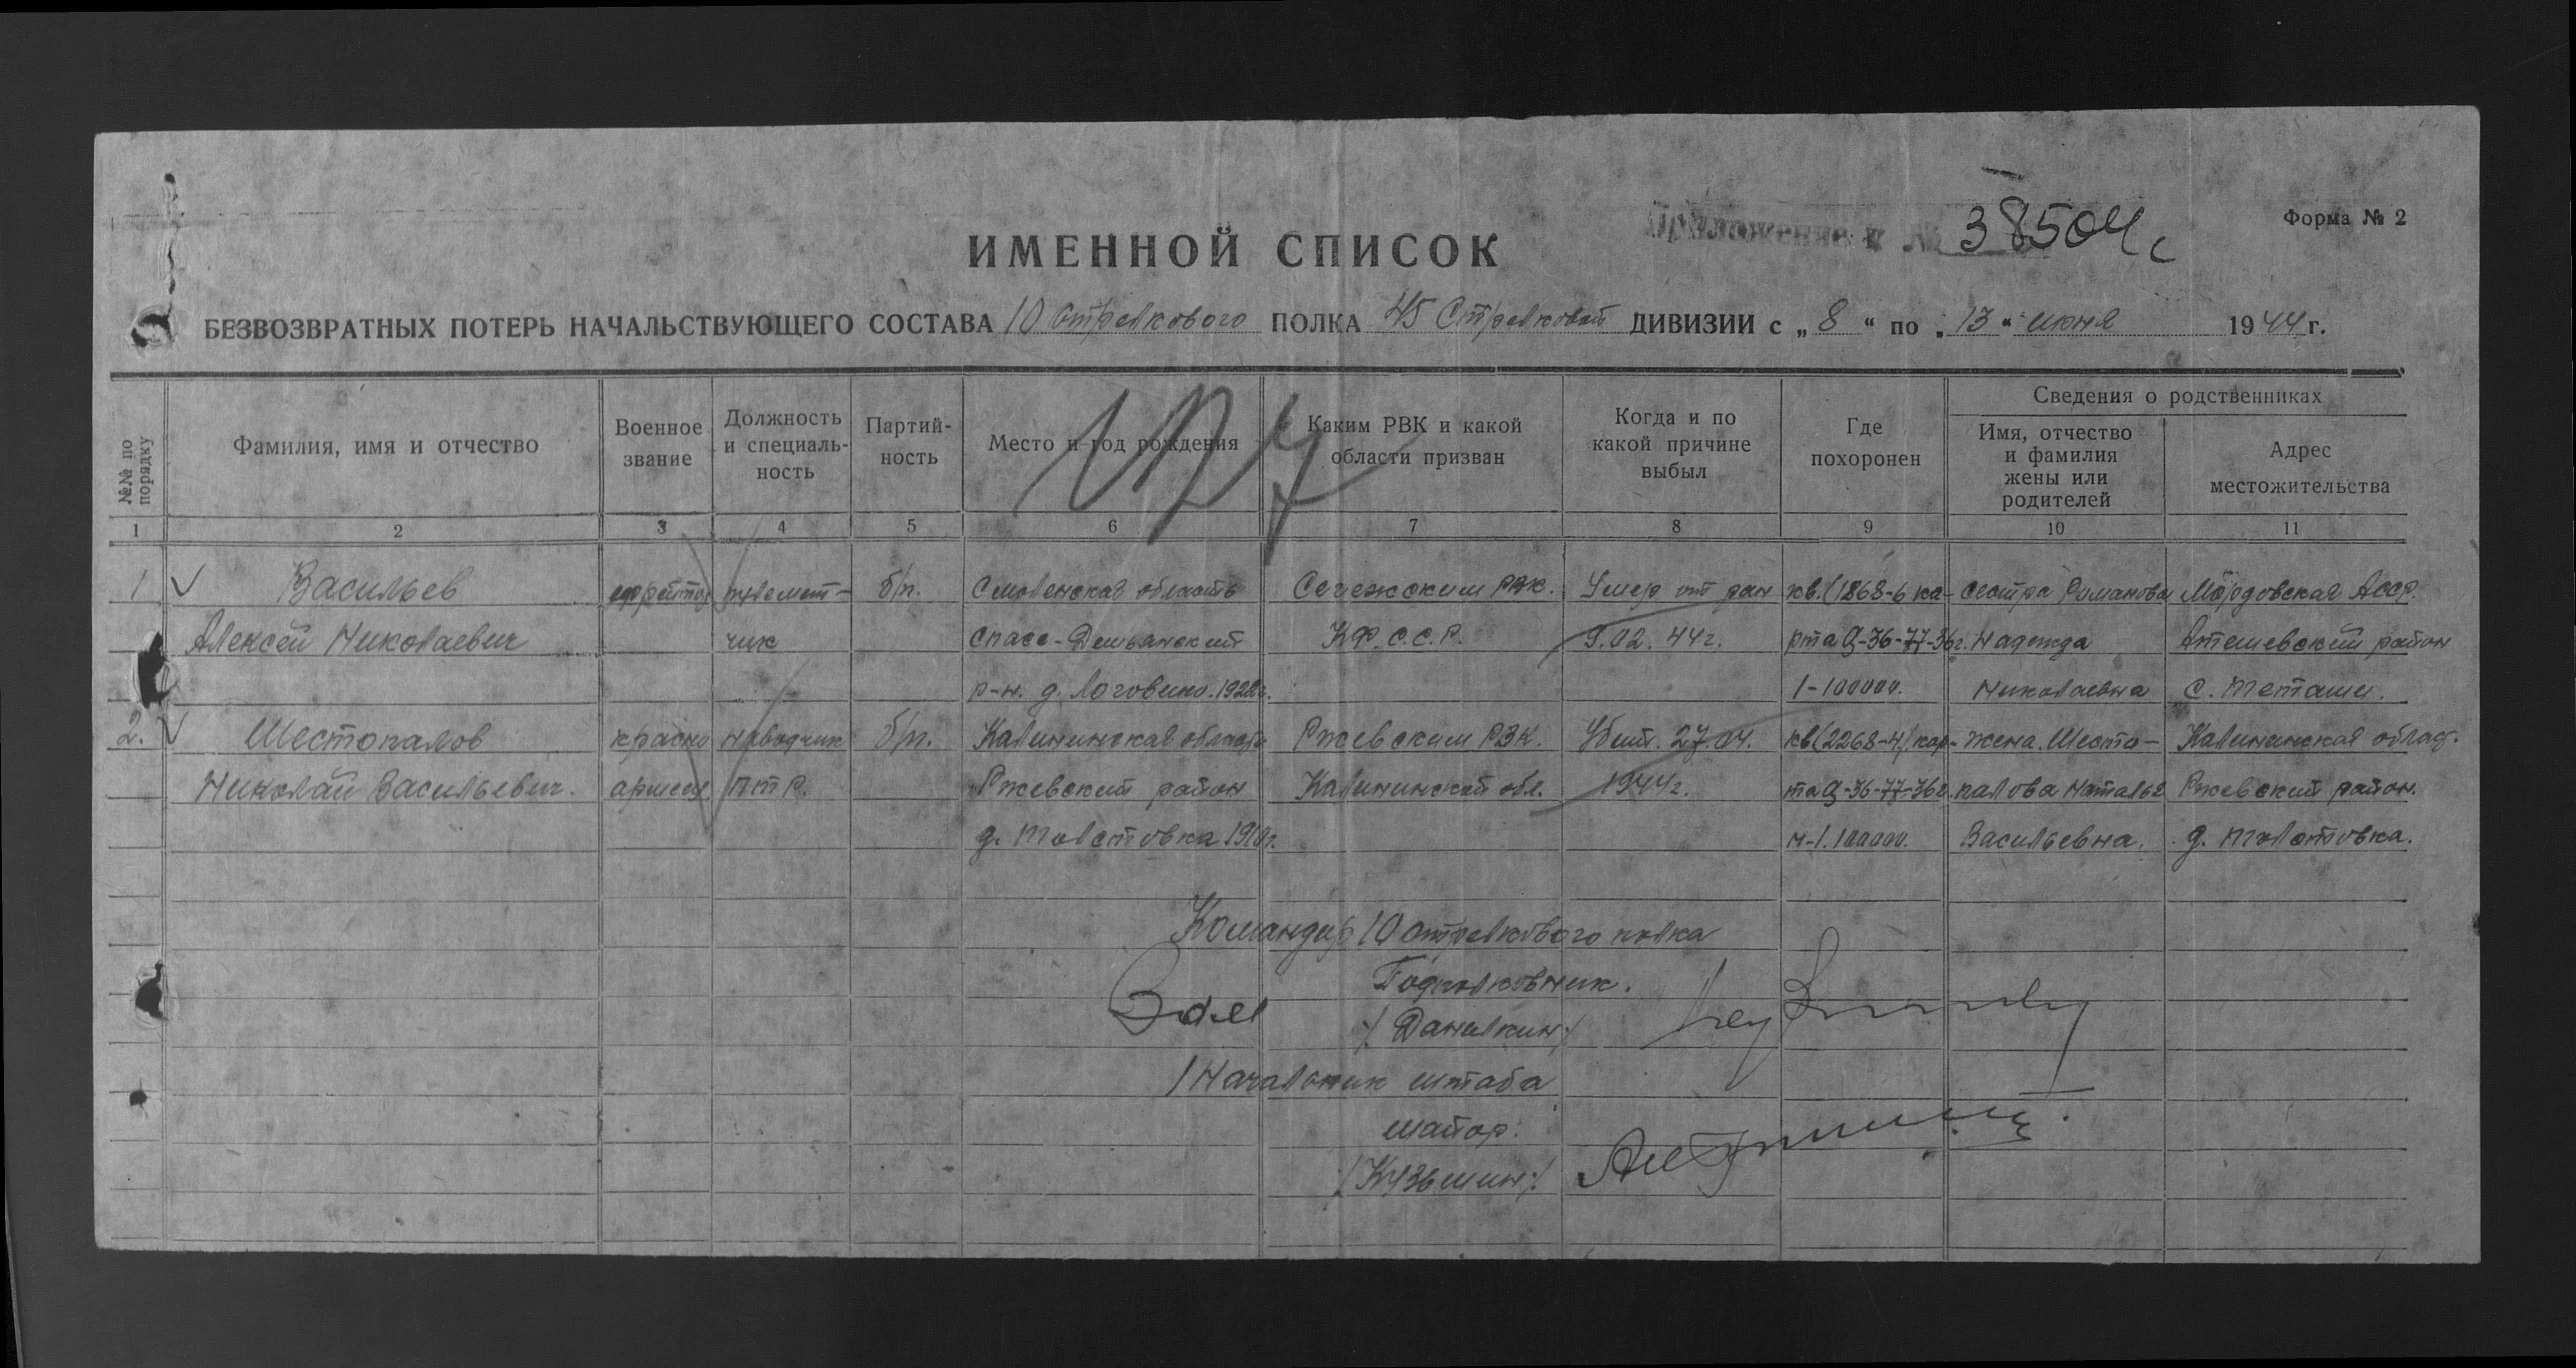 Приложение к № 38504с
Форма № 2
ИМЕННОЙ СПИСОК
БЕЗВОЗВРАТНЫХ ПОТЕРЬ НАЧАЛЬСТВУЮЩЕГО СОСТАВА 10 стрелкового ПОЛКА 45 Стрелковой ДИВИЗИИ с „8“ по „13“ июня 1944 г.
№№ по порядку
Фамилия, имя и отчество
Военное звание
Должность и специаль-ность
Партий-ность
Место и год рождения
Каким РВК и какой области призван
Когда и по какой причине выбыл
Где похоронен
Сведения о родственниках
Имя, отчество и фамилия жены или родителей
Адрес местожительства
1 2 3 4 5 6 7 8 9 10 11
1 Васильев ефрейтор пулемет- б/п. Смоленская область Сегежским РВК. Умер от ран кв.(1868-6 ка- сестра Романова Мордовская Асср.
Алексей Николаевич чик Спасс-Демьянский КФ.С.С.Р. 9.02.44г. рта Q-36-77-36г. Надежда район
р-н. д. Логовино. 1-100000. Николаевна с.
2. Шестопалов красно наводчик б/п. Калининская область Ржевским РВК. Убит. 27.04. кв(2268-4) кар- жена. Шесто- Калининская област.
Николай Васильевич. армеец ПТР. Ржевский район Калининской обл. 1944г. та Q-36-77-36г. палова Наталья Ржевский район.
д. Толстовка 1910г. м-1.100000. Васильевна. д. Толстовка.
Командир 10 стрелкового полка
Подполковник.
Зам
/Данилкин/
Начальник штаба
майор.
/Кузьмин/